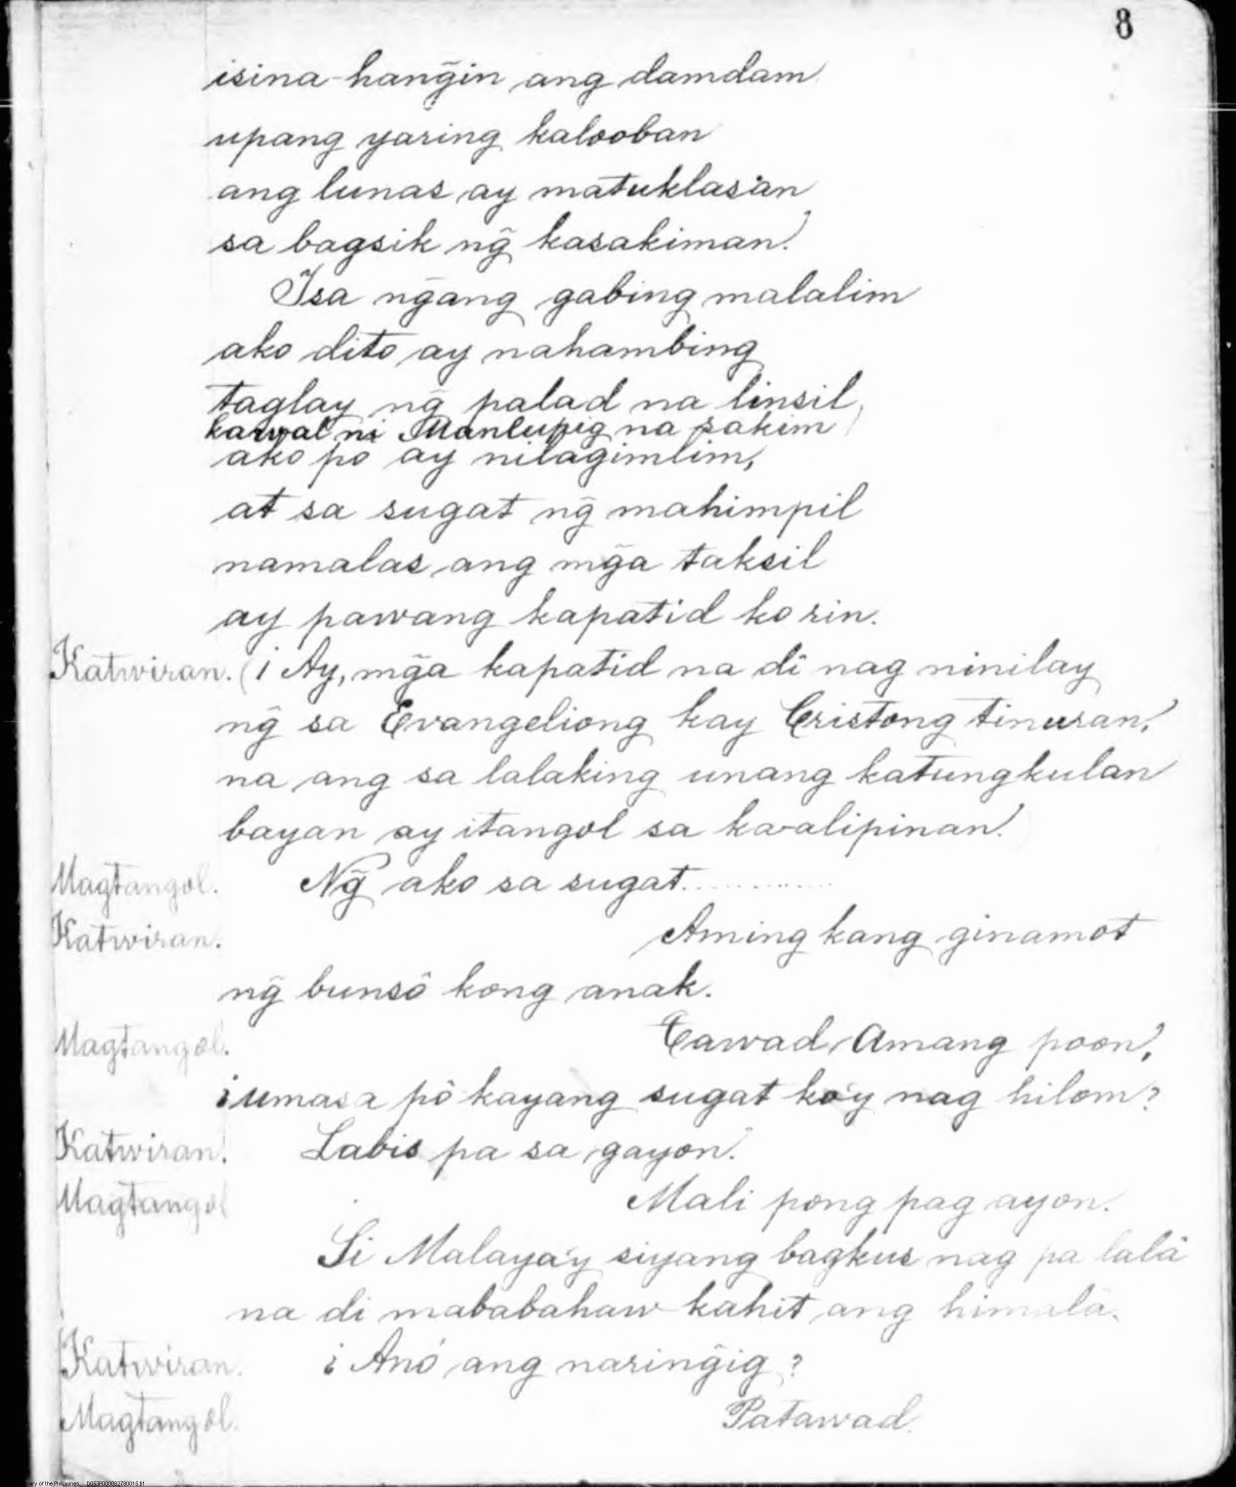 8
isina-hang̃in ang damdam
upang yaring kalooban
ang lunas ay matuklasan
sa bagsik ng̃ kasakiman.
Isa ng̃ang gabing malalim
ako dito ay nahambing
taglay ng̃ palad na linsil,
kawal ni Manlupig na sakim
ako po ay nilagimlim,
at sa sugat ng̃ mahimpil
namalas ang mg̃a taksil
ay pawang kapatid ko rin.
Katwiran. (¡Ay, mg̃a kapatid na di nag ninilay
ng̃ sa Evangeliong kay Cristong tinuran,
na ang sa lalaking unang katungkulan
bayan ay itangol sa kaalipinan!
Magtangol. Ng̃ ako sa sugat............
Katwiran. Aming kang ginamot
ng̃ bunsô kong anak.
Magtangol. Tawad, Amang poon,
¿umasa pô kayang sugat ko'y nag hilom?
Katwiran. Labis pa sa gayon.
Magtangol Mali pong pag ayon.
Si Malaya'y siyang bagkus nag pa lalâ
na di mababahaw kahit ang himalâ.
Katwiran. ¿Anó ang naring̃ig?
Magtangol. Patawad.